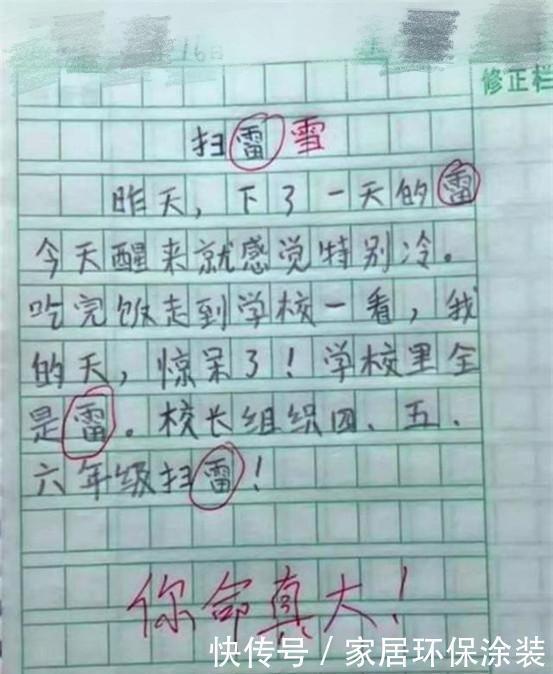 16日
修正栏
扫雷雪
昨天，下了一天的雷
今天醒来就感觉特别冷。
吃完饭走到学校一看，我
的天，惊呆了！学校里全
是雷。校长组织四、五、
六年级扫雷！
你命真大！
快传号/家居环保涂装